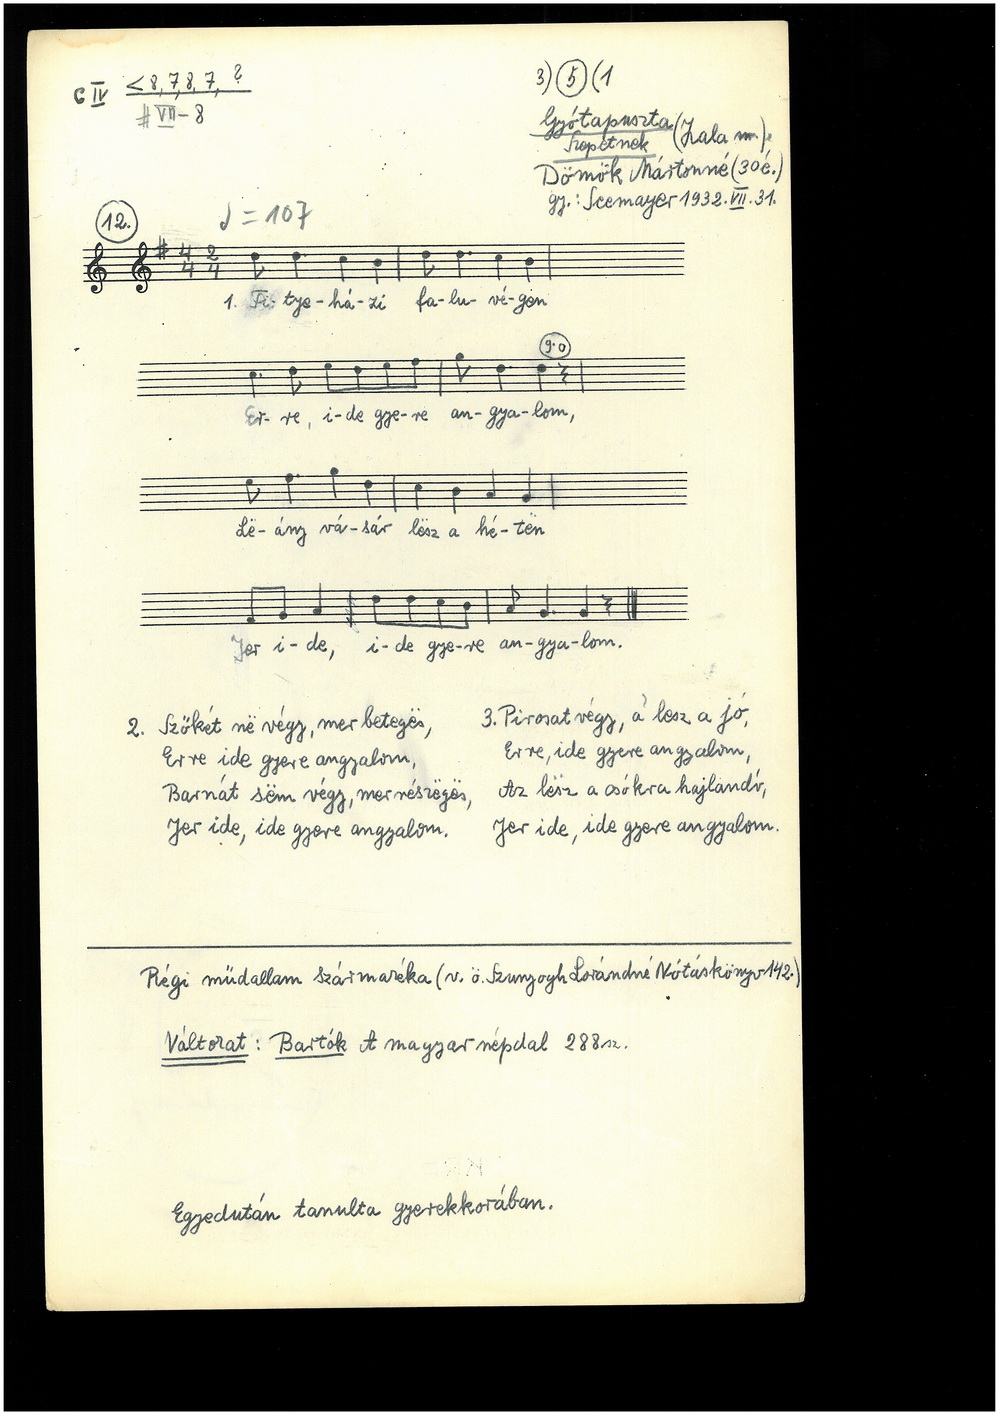 C IV < 8, 7, 8, 7, ?
# VII - 8
3) 5 (1
Gyótapuszta (Zala m.)
Szepetnek
Dömök Mártonné (30 é.)
gy.: Seemayer 1932. VII. 31.
12.
♩ = 107
4 2
4 4
1. Fi- tye- há- zi fa- lu- vé- gen
9.0
Er- re, i- de gye- re an- gya- lom,
Lë- ány vá- sár lësz a hé- tën
Jer i- de, i- de gye- re an- gya- lom.
2. Szőkét në végy, mer betegës,
Erre ide gyere angyalom,
Barnát sëm végy, mer részëgës,
Jer ide, ide gyere angyalom.
3. Pirosat végy, a lesz a jó,
Erre, ide gyere angyalom,
Az lësz a csókra hajlandó,
Jer ide, ide gyere angyalom.
Régi műdallam származéka (v. ö. Szunyogh Lorándné Nótáskönyv 142.)
Változat: Bartók A magyar népdal 288 sz.
Egyedután tanulta gyerekkorában.